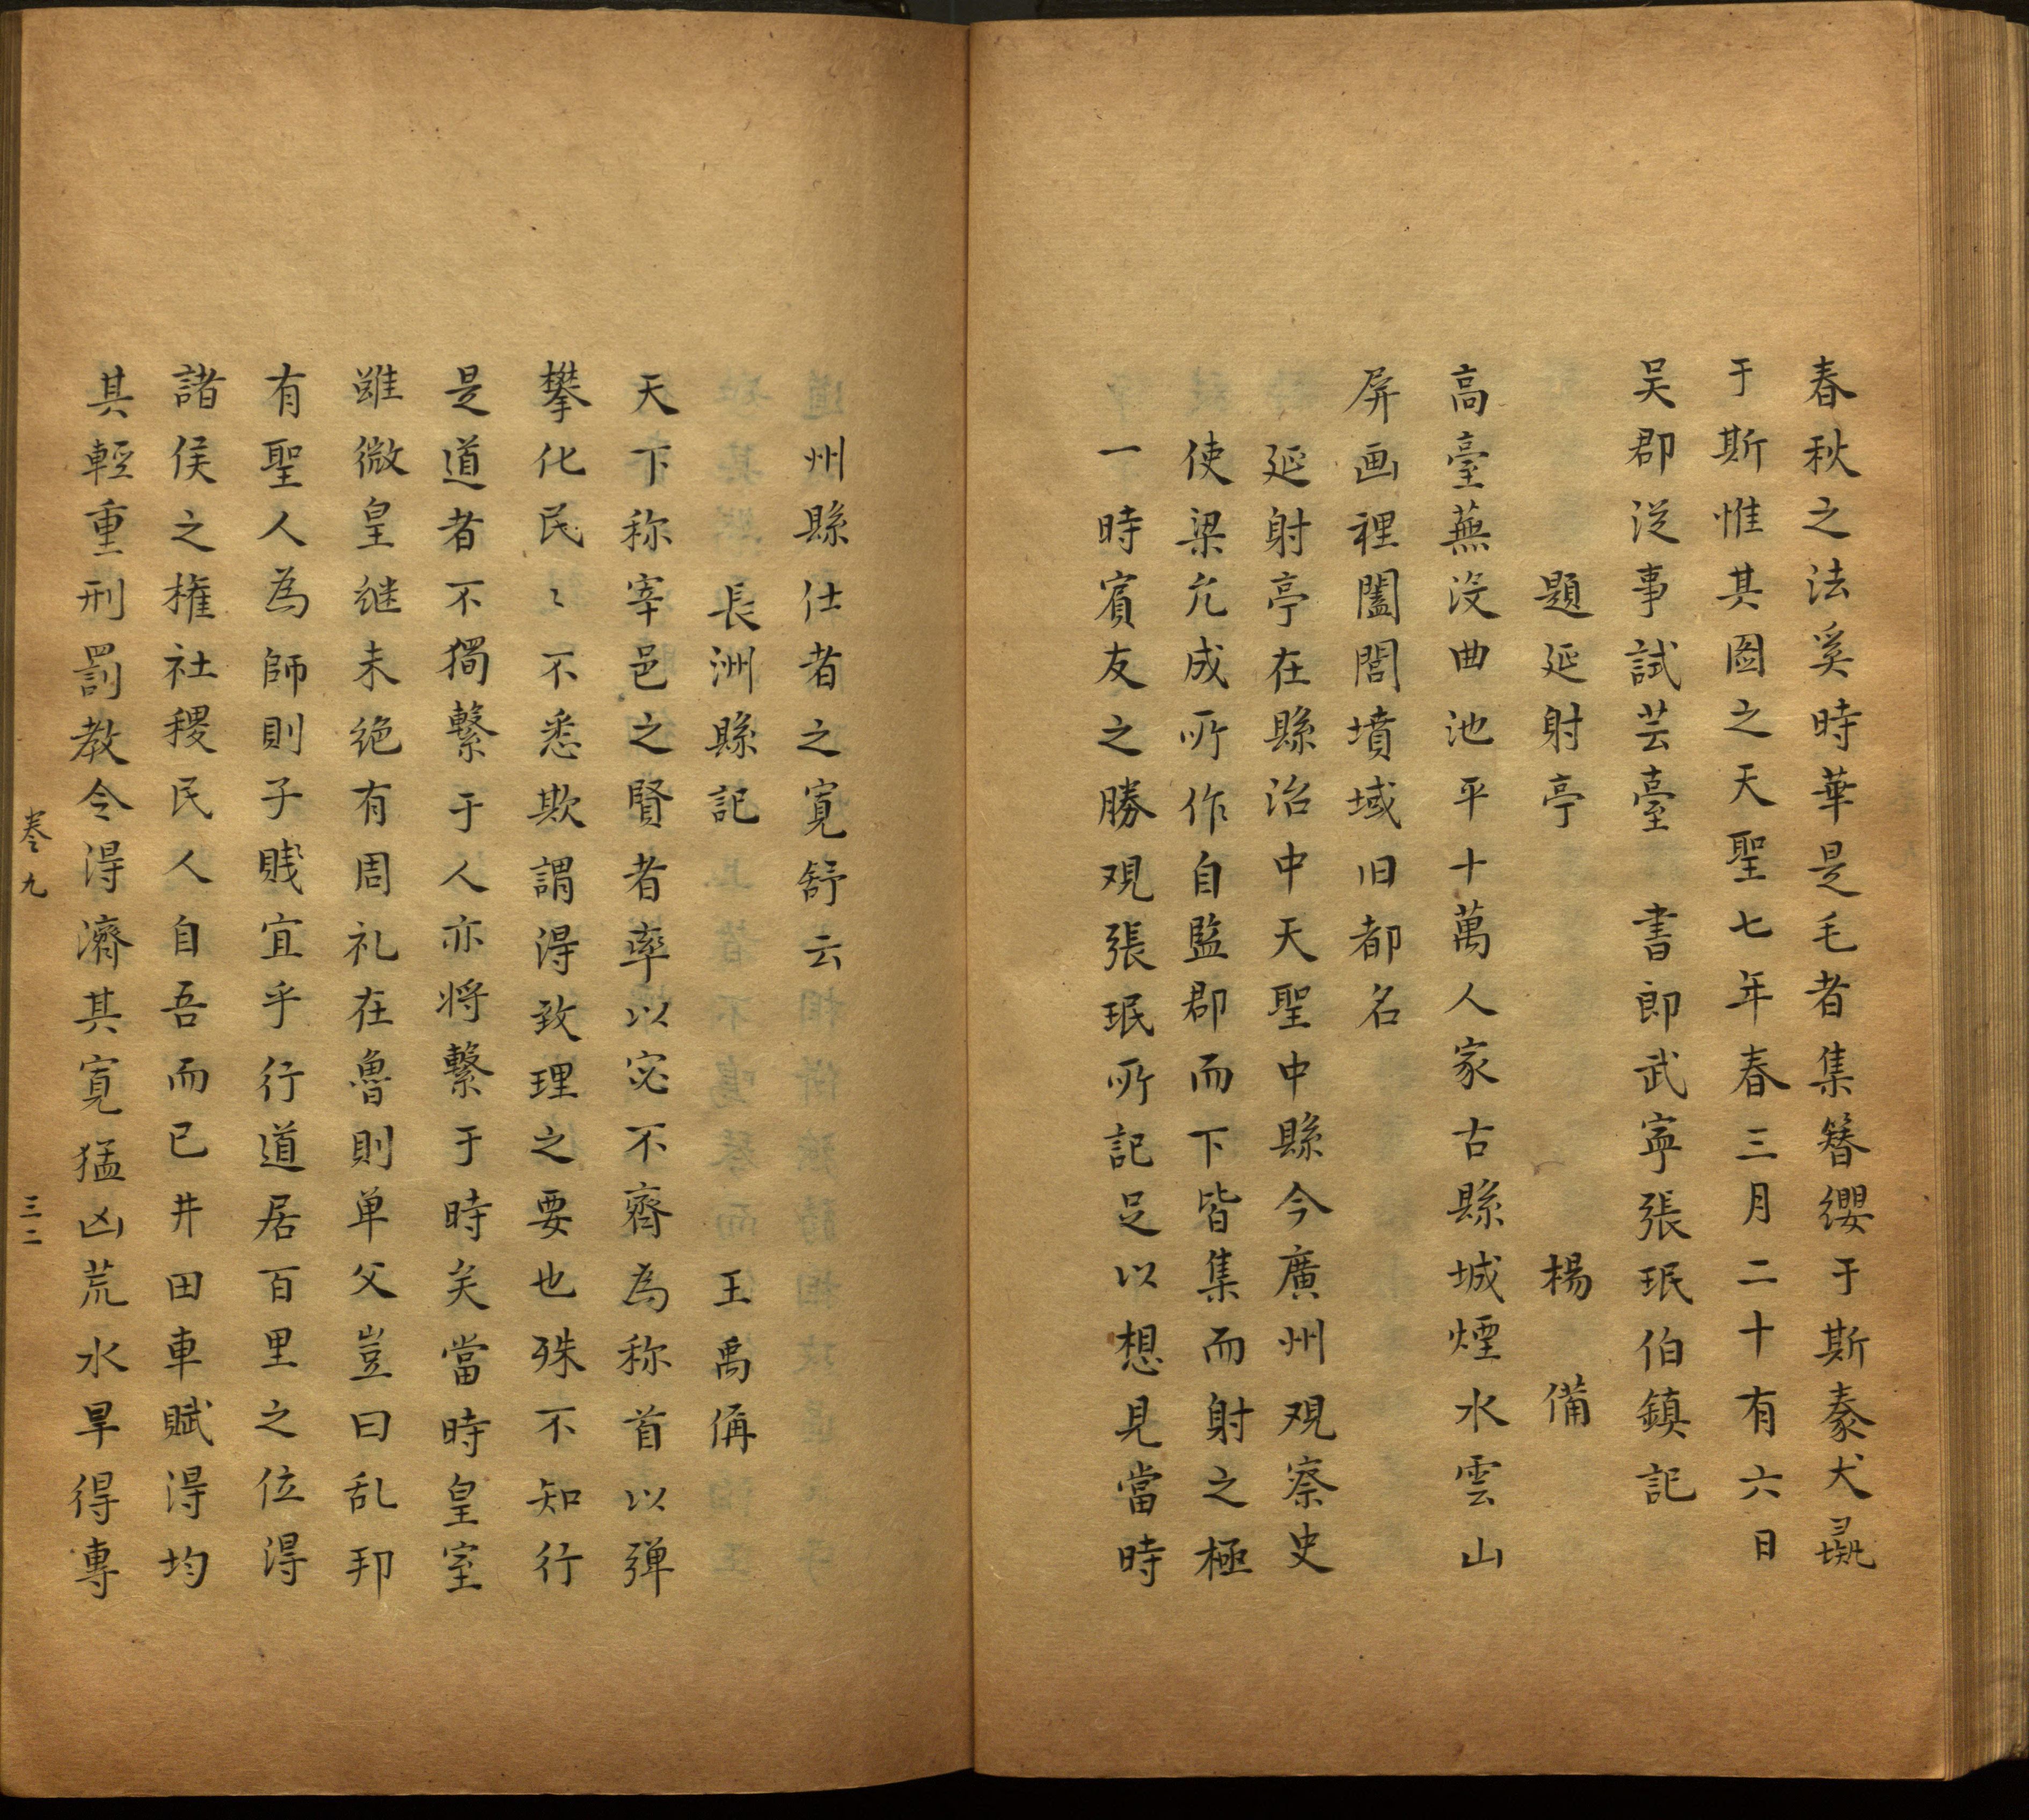 春秋之法奚時華是毛者集簪纓于斯豢犬彘
于斯惟其圖之天聖七年春三月二十有六日
吴郡従事試芸臺　書郎武寧張珉伯鎮記
題延射亭　楊　備
高臺蕪没曲池平十萬人家古縣城煙水雲山
屏画裡闔閭墳域旧都名
延射亭在縣治中天聖中縣今廣州观察史
使梁允成所作自監郡而下皆集而射之極
一時賔友之勝观張珉所記足以想見當時
州縣仕者之寬舒云
長洲縣記　王禹偁
天下称宰邑之賢者率以宓不齊為称首以弹
攀化民〻不悉欺謂得致理之要也殊不知行
是道者不獨繫于人亦将繫于時矣當時皇室
雖微皇継未绝有周礼在魯則单父豈曰乱邦
有聖人為師則子賤宜乎行道居百里之位得
諸侯之権社稷民人自吾而已井田車賦得均
其輕重刑罰教令得濟其寬猛凶荒水旱得專
卷九　三二